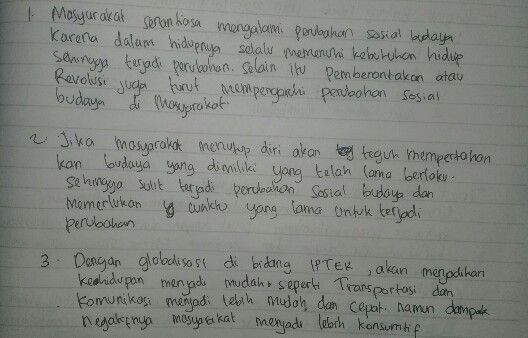 1. Masyarakat senantiasa mengalami perubahan sosial budaya
karena dalam hidupnya selalu memenuhi kebutuhan hidup
sehingga terjadi perubahan. Selain itu Pemberontakan atau
Revolusi juga turut mempengaruhi perubahan sosial
budaya di Masyarakat.
2. Jika masyarakat menutup diri akan teguh mempertahan
kan budaya yang dimiliki yang telah lama berlaku.
Sehingga sulit terjadi perubahan sosial budaya dan
Memerlukan waktu yang lama untuk terjadi
perubahan
3. Dengan globalisasi di bidang IPTEK, akan menjadikan
kehidupan menjadi mudah, seperti Transportasi dan
komunikasi menjadi lebih mudah dan cepat. namun dampak
negatifnya masyarakat menjadi lebih konsumtif